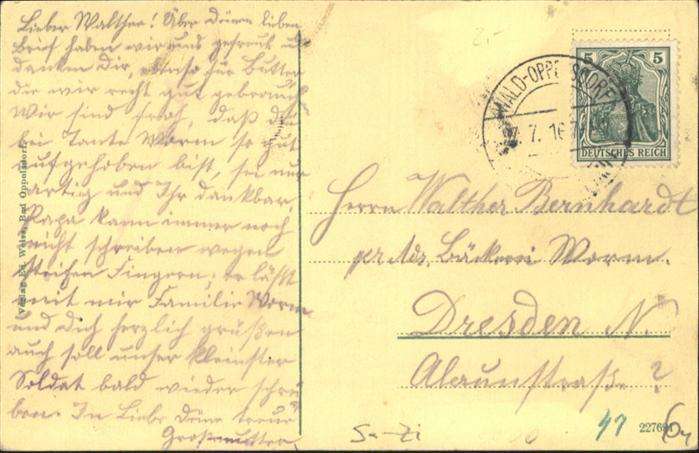 Lieber Walther! Über Deinen lieben
Brief haben wir uns gefreut u
danken Dir, ebenso für Butter
die wir recht gut gebrauch
Wir sind froh, daß du
bei Tante Worm so gut
aufgehoben bist, sei nur
artig und Ihr dankbar,
Papa kann immer noch
nicht schreiben wegen
steifen Fingern; er läßt
mit mir Familie Worm
und Dich herzlich grüßen
auch soll unser kleinster
Soldat bald wieder schrei
ben. In Liebe Deine treue
Großmutter
Verlag Weise, Bad Oppelsdorf.
WALD-OPPELSDORF
7. 16
5 5
DEUTSCHES REICH
Herrn Walther Bernhardt
pr Adr. Bäckerei Worm.
Dresden N.
Alaunstraße ?
Sa-Zi
41